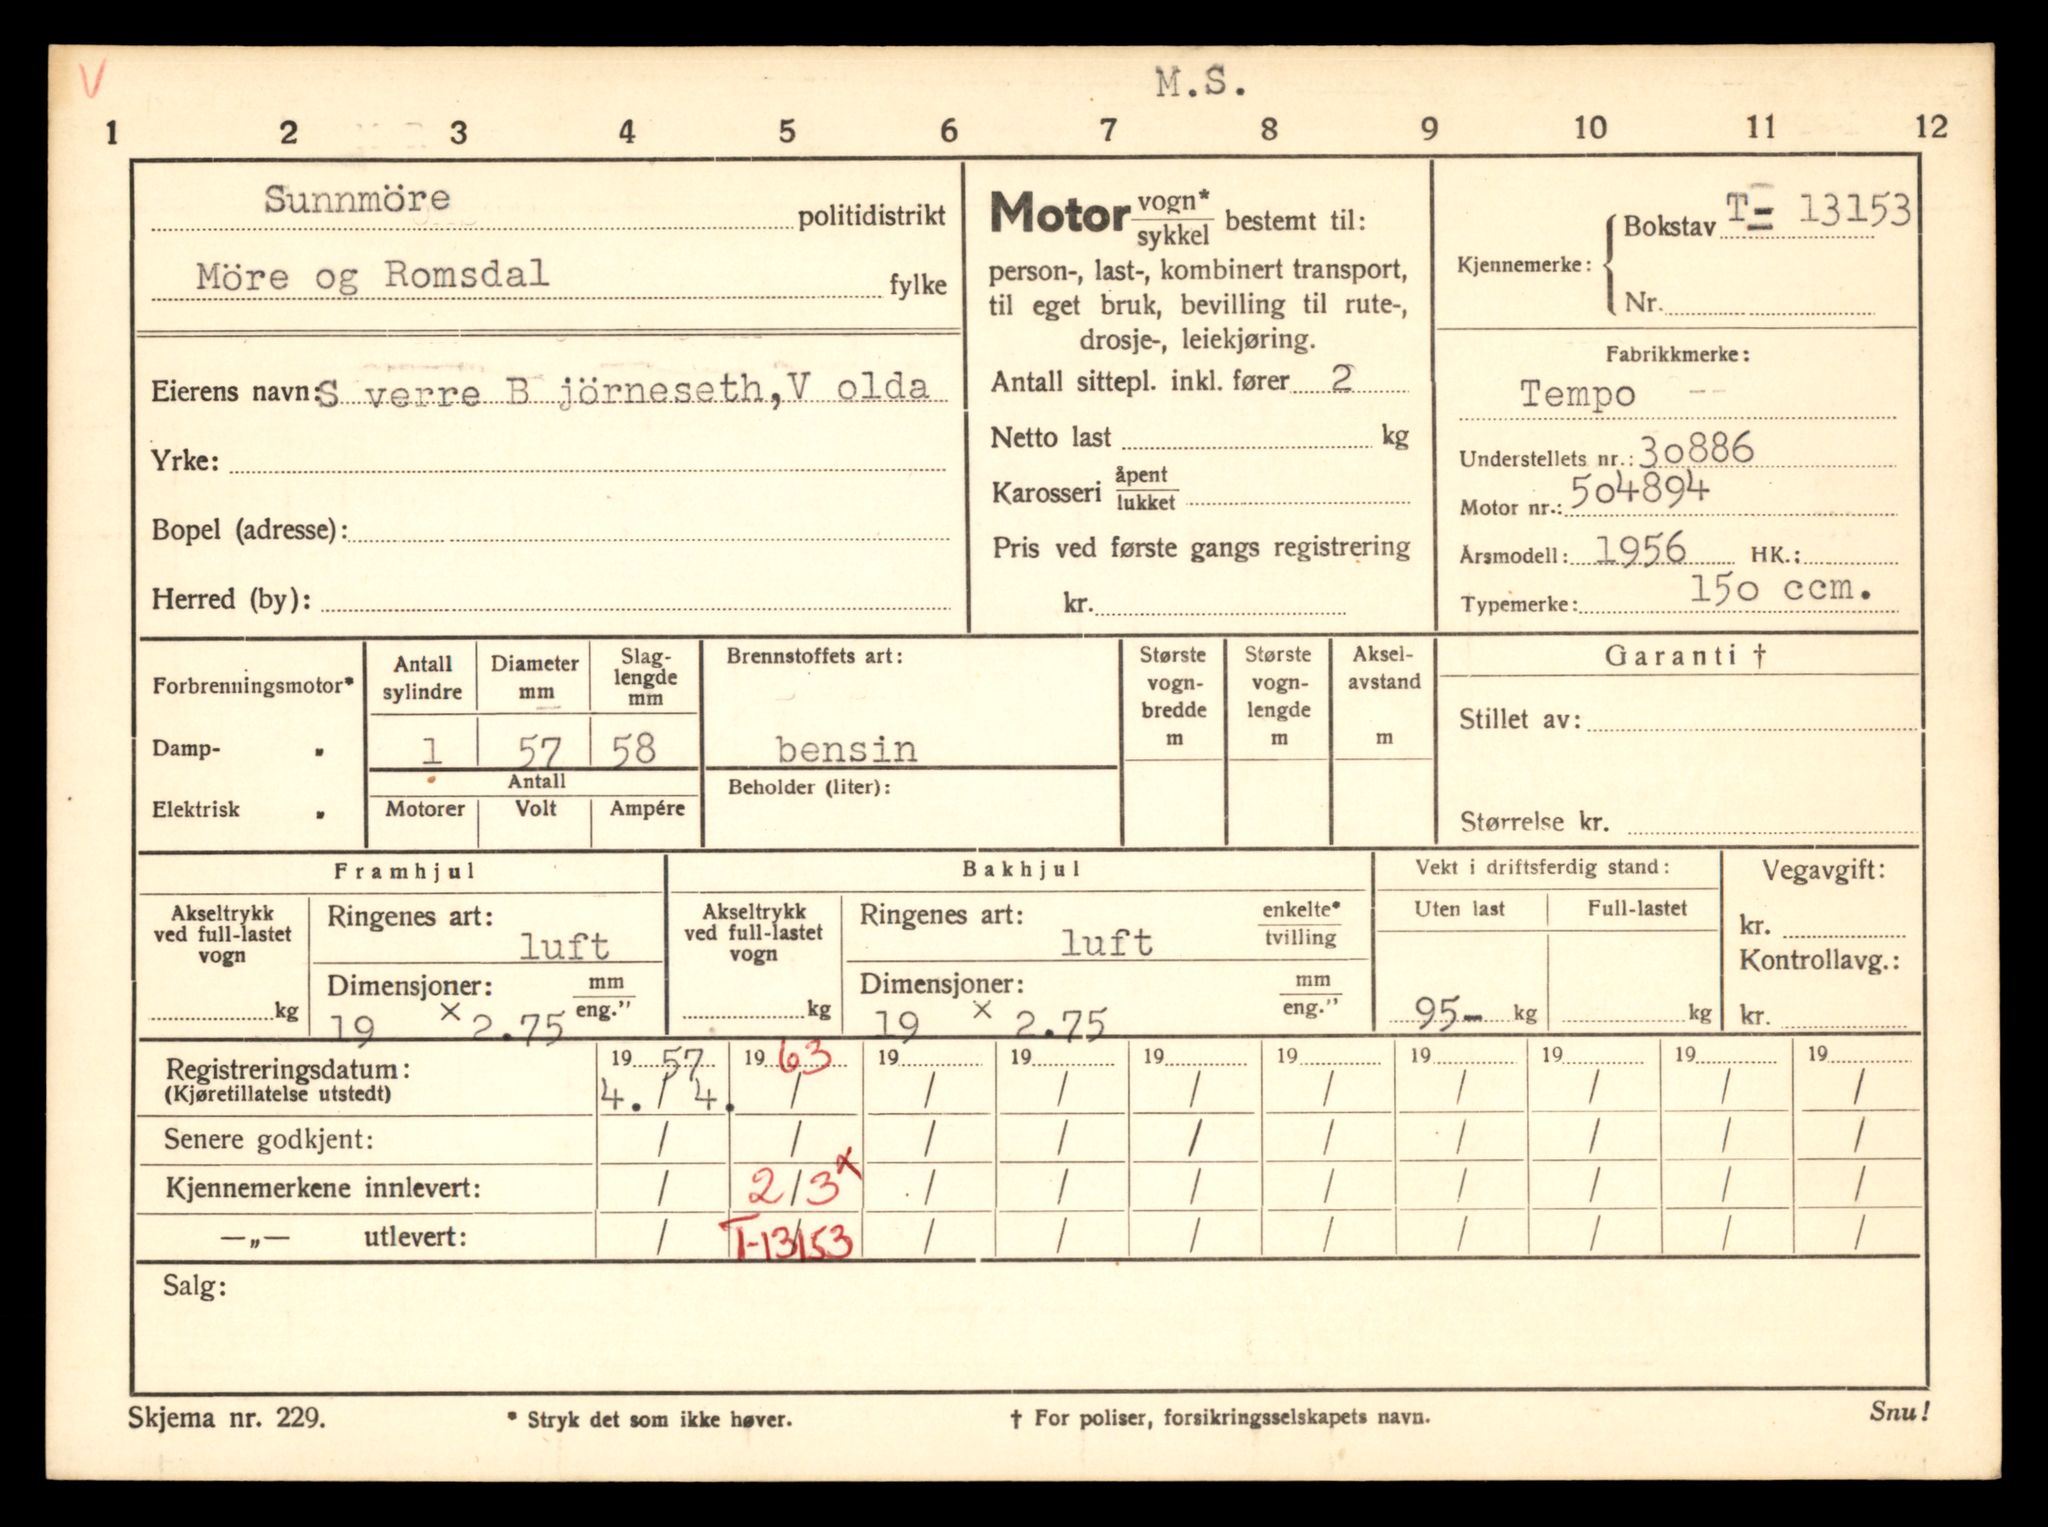 V
M.S.
1 2 3 4 5 6 7 8 9 10 11 12
Sunnmöre politidistrikt
Möre og Romsdal fylke
Eierens navn: S verre B jörneseth, V olda
Yrke:
Bopel (adresse):
Herred (by):
Motor vogn* / sykkel bestemt til:
person-, last-, kombinert transport,
til eget bruk, bevilling til rute-,
drosje-, leiekjøring.
Antall sittepl. inkl. fører 2
Netto last kg
Karosseri åpent / lukket
Pris ved første gangs registrering
kr.
Kjennemerke: Bokstav T= 13153
Nr.
Fabrikkmerke:
Tempo
Understellets nr.: 30886
Motor nr.: 504894
Årsmodell: 1956 HK.:
Typemerke: 150 ccm.
Forbrenningsmotor*
Damp- "
Elektrisk "
Antall sylindre
Diameter mm
Slag-lengde mm
1 57 58
Antall
Motorer Volt Ampére
Brennstoffets art:
bensin
Beholder (liter):
Største vogn-bredde m
Største vogn-lengde m
Aksel-avstand m
Garanti †
Stillet av:
Størrelse kr.
Framhjul
Akseltrykk ved full-lastet vogn
kg
Ringenes art:
luft
Dimensjoner: mm / eng."
19 × 2.75
Bakhjul
Akseltrykk ved full-lastet vogn
kg
Ringenes art: enkelte* / tvilling
luft
Dimensjoner: mm / eng."
19 × 2.75
Vekt i driftsferdig stand:
Uten last Full-lastet
95- kg kg
Vegavgift:
kr.
Kontrollavg.:
kr.
Registreringsdatum: 19 57 19 63 19 19 19 19 19 19 19 19
(Kjøretillatelse utstedt) 4. / 4. / / / / / / / / /
Senere godkjent: / / / / / / / / / /
Kjennemerkene innlevert: / 2/3x / / / / / / / /
—„— utlevert: / T-13153 / / / / / / / /
Salg:
Skjema nr. 229.
* Stryk det som ikke høver.
† For poliser, forsikringsselskapets navn.
Snu!